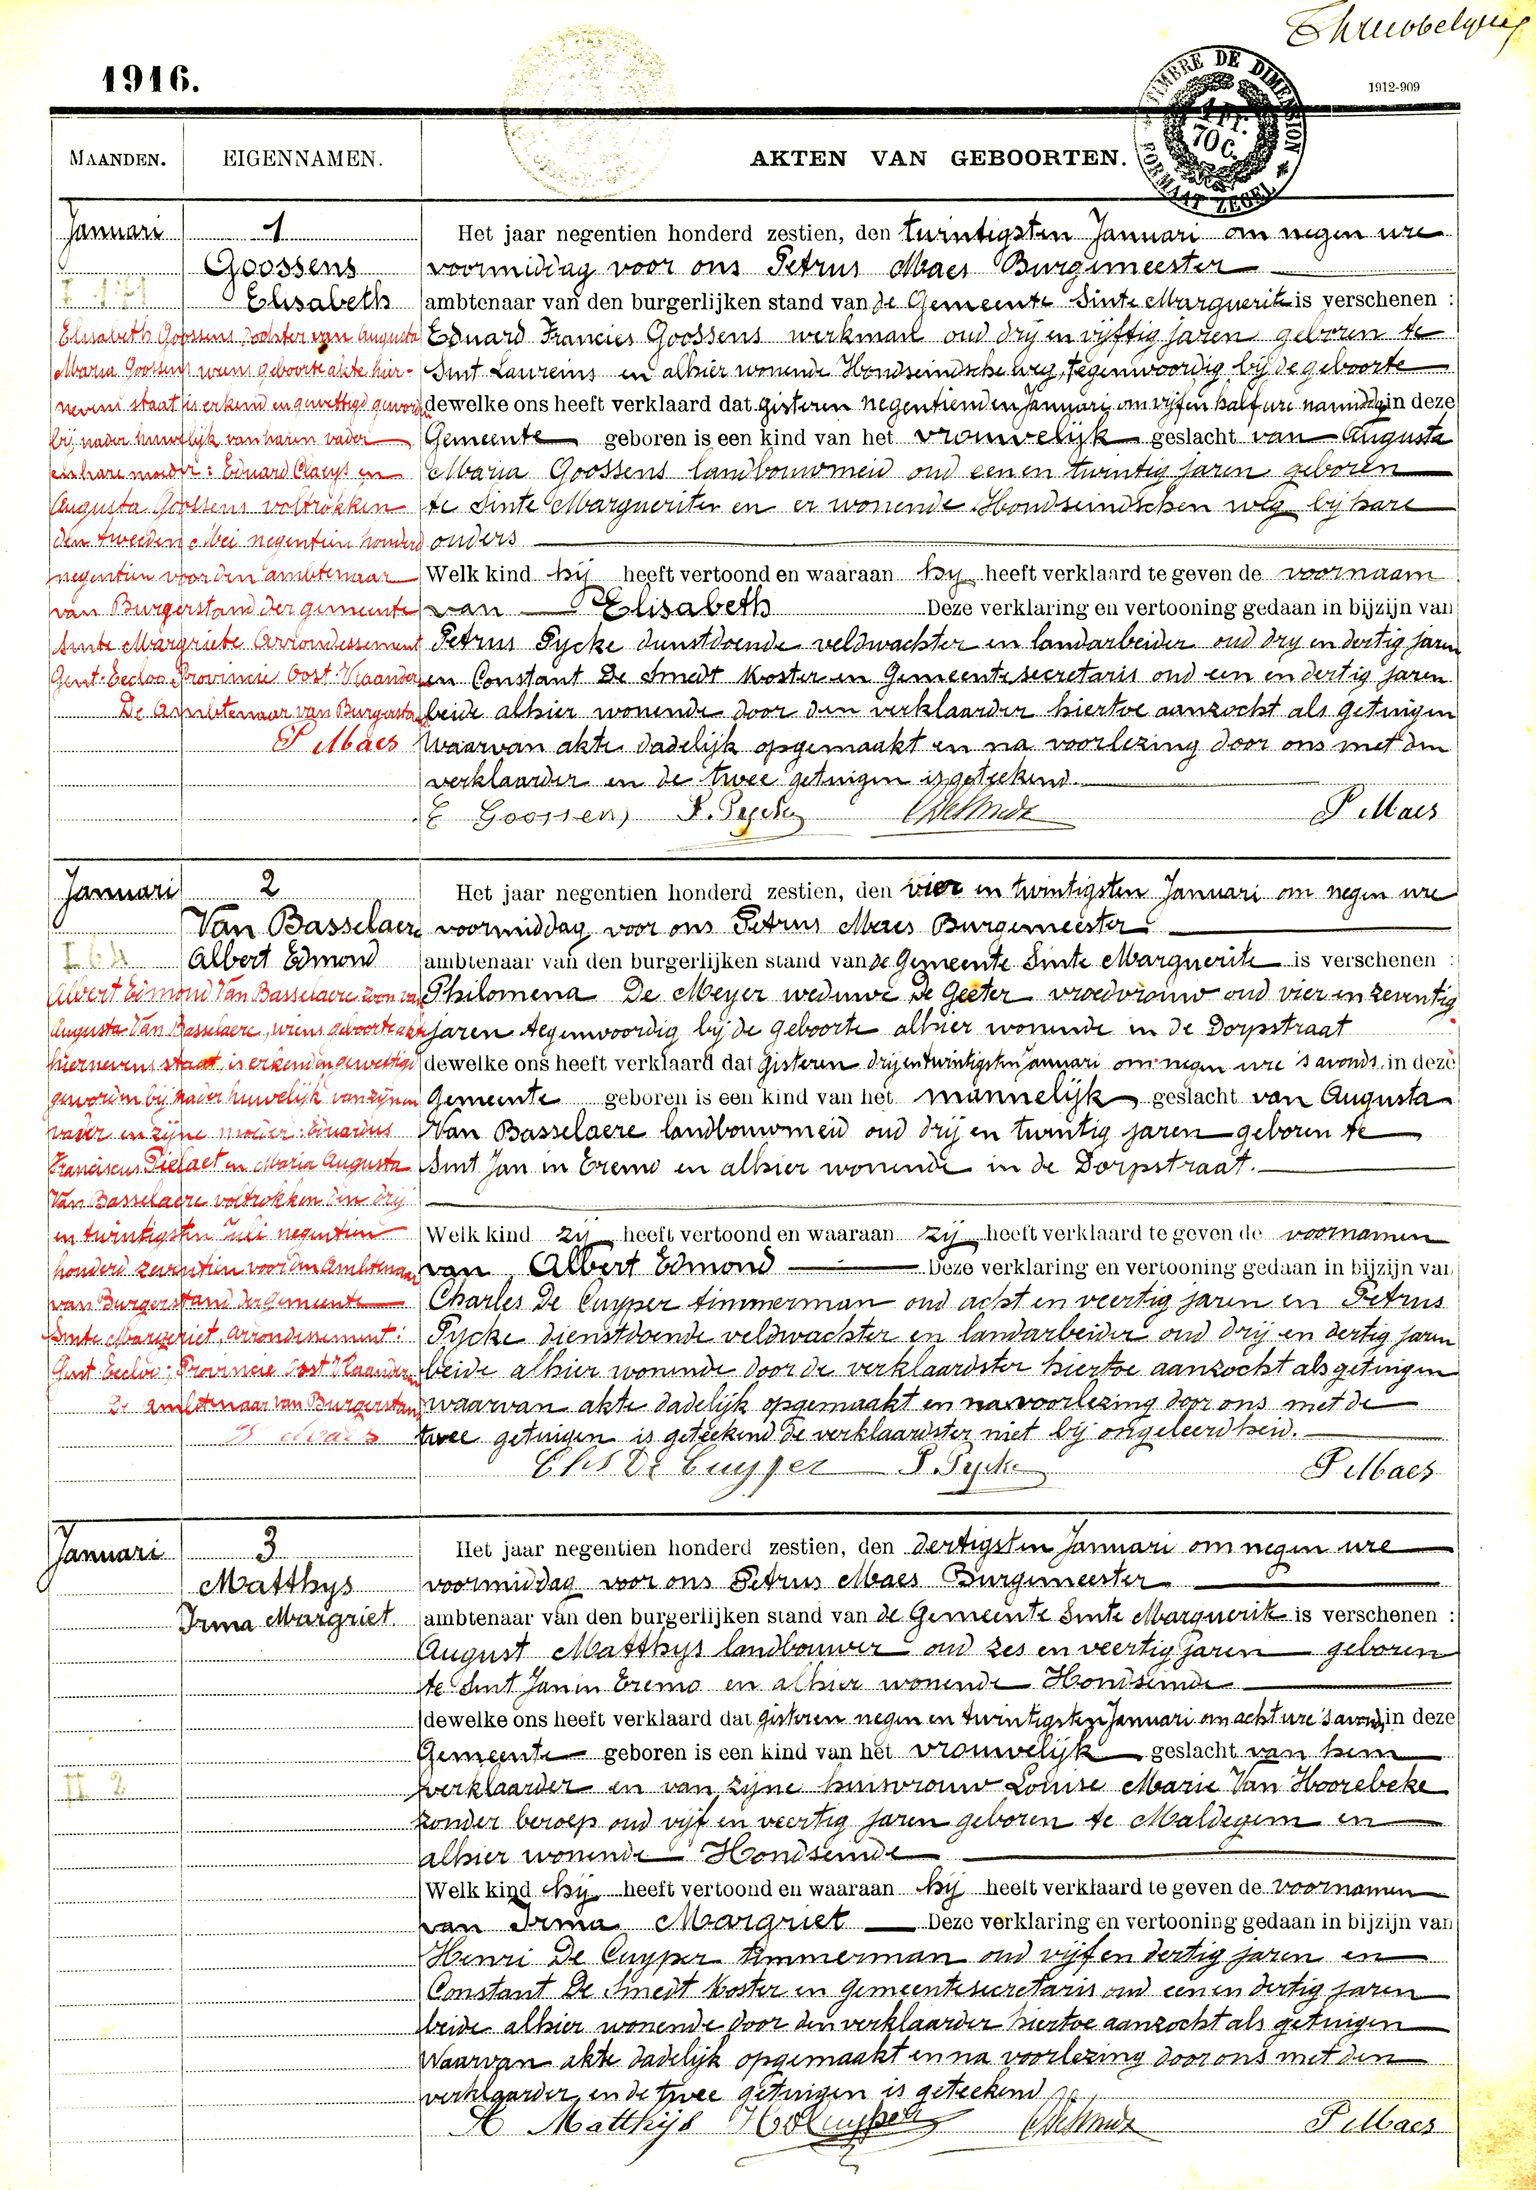 1916.
TIMBRE DE DIMENSION
1 Fr. 70 C.
FORMAAT ZEGEL
1912-909
MAANDEN.
EIGENNAMEN.
AKTEN VAN GEBOORTEN.
Januari
1
Goossens
Elisabeth
I 171
Elisabeth Goossens, dochter van Augusta
Maria Goossens wiens geboorte akte hier-
nevens staat is erkend en gewettigd geworden
bij nader huwelijk van haren vader
en hare moeder: Eduard Claeys en
Augusta Goossens voltrokken
den tweeden Mei negentien honderd
negentien voor den ambtenaar
van Burgerstand der gemeente
Sinte Margriete Arrondessement
Gent-Eecloo, Provincie Oost-Vlaanderen
De Ambtenaar van Burgerstand
P Maes
Het jaar negentien honderd zestien, den twintigsten Januari om negen ure
voormiddag voor ons Petrus Maes Burgemeester
ambtenaar van den burgerlijken stand van de Gemeente Sinte Marguerite is verschenen :
Eduard Francies Goossens werkman oud drij en vijftig jaren geboren te
Sint Laureins en alhier wonende Hondseindsche weg, tegenwoordig bij de geboorte
dewelke ons heeft verklaard dat gisteren negentienden Januari om vijf en half ure namiddag in deze
Gemeente geboren is een kind van het vrouwelijk geslacht van Augusta
Maria Goossens landbouwmeid oud een en twintig jaren geboren
te Sinte Margueriten en er wonende Hondseindschen weg bij hare
ouders
Welk kind hij heeft vertoond en waaraan hij heeft verklaard te geven de voornaam
van Elisabeth Deze verklaring en vertooning gedaan in bijzijn van
Petrus Pycke dienstdoende veldwachter en landarbeider oud dry en dertig jaren
en Constant De Smedt Koster en Gemeentesecretaris oud een en dertig jaren
beide alhier wonende door den verklaarder hiertoe aanzocht als getuigen
Waarvan akte dadelijk opgemaakt en na voorlezing door ons met den
verklaarder en de twee getuigen is geteekend.
E Goossens P. Pycke CDeSmedt P Maes
Januari
2
Van Basselaere
Albert Edmond
I 64
Albert Edmond Van Basselaere zoon van
Augusta Van Basselaere, wiens geboorte akte
hiernevens staat, is erkend en gewettigd
geworden bij nader huwelijk van zijnen
vader en zijne moeder: Eduardus
Franciscus Pielaet en Maria Augusta
Van Basselaere voltrokken den drij
en twintigsten Juli negentien
honderd zeventien voor den Ambtenaar
van Burgerstand der gemeente
Sinte Margeriet, arrondissement:
Gent Eecloo; Provincie Oost Vlaanderen
De ambtenaar van Burgerstand
P Maes
Het jaar negentien honderd zestien, den vier en twintigsten Januari om negen ure
voormiddag voor ons Petrus Maes Burgemeester
ambtenaar van den burgerlijken stand van de Gemeente Sinte Marguerite is verschenen :
Philomena De Meyer weduwe De Geeter vroedvrouw oud vier en zeventig
jaren tegenwoordig bij de geboorte alhier wonende in de Dorpstraat
dewelke ons heeft verklaard dat gisteren drij en twintigsten Januari om negen ure 's avonds in deze
Gemeente geboren is een kind van het mannelijk geslacht van Augusta
Van Basselaere landbouwmeid oud drij en twintig jaren geboren te
Sint Jan in Eremo en alhier wonende in de Dorpstraat.
Welk kind zij heeft vertoond en waaraan zij heeft verklaard te geven de voornamen
van Albert Edmond Deze verklaring en vertooning gedaan in bijzijn van
Charles De Cuyper timmerman oud acht en veertig jaren en Petrus
Pycke dienstdoende veldwachter en landarbeider oud drij en dertig jaren
beide alhier wonende door de verklaardster hiertoe aanzocht als getuigen
waarvan akte dadelijk opgemaakt en na voorlezing door ons met de
twee getuigen is geteekend de verklaardster niet bij ongeleerdheid.
Chs De Cuyper P. Pycke P Maes
Januari
3
Matthys
Irma Margriet
II 2
Het jaar negentien honderd zestien, den dertigsten Januari om negen ure
voormiddag voor ons Petrus Maes Burgemeester
ambtenaar van den burgerlijken stand van de Gemeente Sinte Marguerite is verschenen :
August Matthys landbouwer oud zes en veertig jaren geboren
te Sint Jan in Eremo en alhier wonende Hondseinde
dewelke ons heeft verklaard dat gisteren negen en twintigsten Januari om acht ure 's avonds in deze
Gemeente geboren is een kind van het vrouwelijk geslacht van hem
verklaarder en van zijne huisvrouw Louise Marie Van Hoorebeke
zonder beroep oud vijf en veertig jaren geboren te Maldegem en
alhier wonende Hondseinde
Welk kind hij heeft vertoond en waaraan hij heeft verklaard te geven de voornamen
van Irma Margriet Deze verklaring en vertooning gedaan in bijzijn van
Henri De Cuyper timmerman oud vijf en dertig jaren en
Constant De Smedt Koster en Gemeentesecretaris oud een en dertig jaren
beide alhier wonende door den verklaarder hiertoe aanzocht als getuigen
Waarvan akte dadelijk opgemaakt en na voorlezing door ons met den
verklaarder en de twee getuigen is geteekend
A Matthijs HDCuyper CDeSmedt P Maes